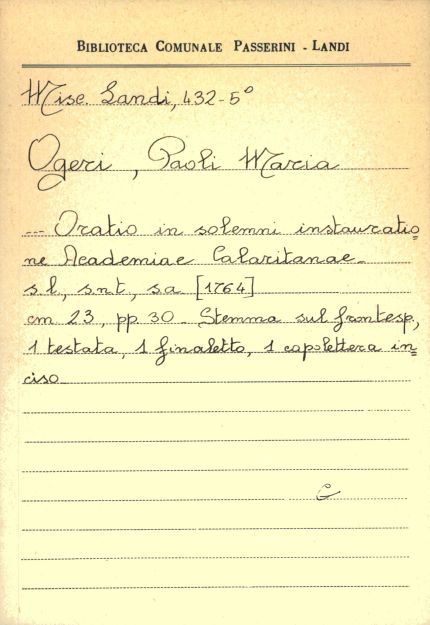 BIBLIOTECA COMUNALE PASSERINI - LANDI
Misc. Landi, 432-5°
Ogeri, Paoli Maria
--- Oratio in solemni instauratio=
ne Academiae Calaritanae.
s.l., s.n.t., s.a. [1764]
cm 23, pp. 30. Stemma sul frontesp.,
1 testata, 1 finaletto, 1 capolettera in=
ciso.